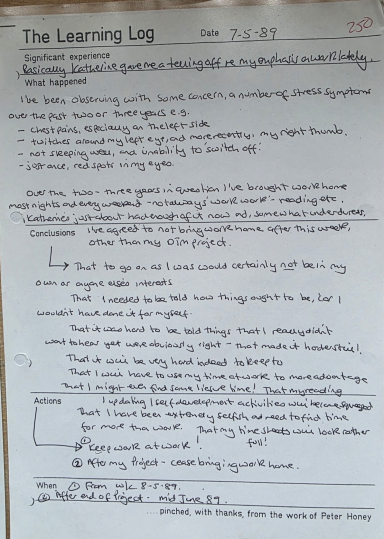 The Learning Log Date 7-5-89 250
Significant experience
Basically Katherine gave me a telling off re my emphasis on work lately.
What happened
I've been observing with some concern, a number of stress symptoms
over the past two or three years e.g.
- chest pains, especially on the left side
- twitches around my left eye, and more recently, my right thumb.
- not sleeping well, and inability to 'switch off'.
- just once, red spots in my eyes.
Over the two - three years in question I've brought work home
most nights and every weekend - not always 'work work' - reading etc.
Katherine's just about had enough of it now and, somewhat under duress,
Conclusions I've agreed to not bring work home after this week,
other than my project.
That to go on as I was would certainly not be in my
own or anyone else's interests
That I needed to be told how things ought to be, for I
wouldn't have done it for myself.
That it was hard to be told things that I really didn't
want to hear yet were obviously right - that made it harder still!
That it will be very hard indeed to keep to
That I will have to use my time at work to more advantage
That I might even find some leisure time! That my reading
Actions / updating / self development activities will become squeezed
That I have been extremely selfish and need to find time
for more than work. That my time sheets will look rather
full!
① Keep work at work!
② After my project - cease bringing work home.
When ① From w/c 8-5-89.
② After end of project - mid June 89.
....pinched, with thanks, from the work of Peter Honey